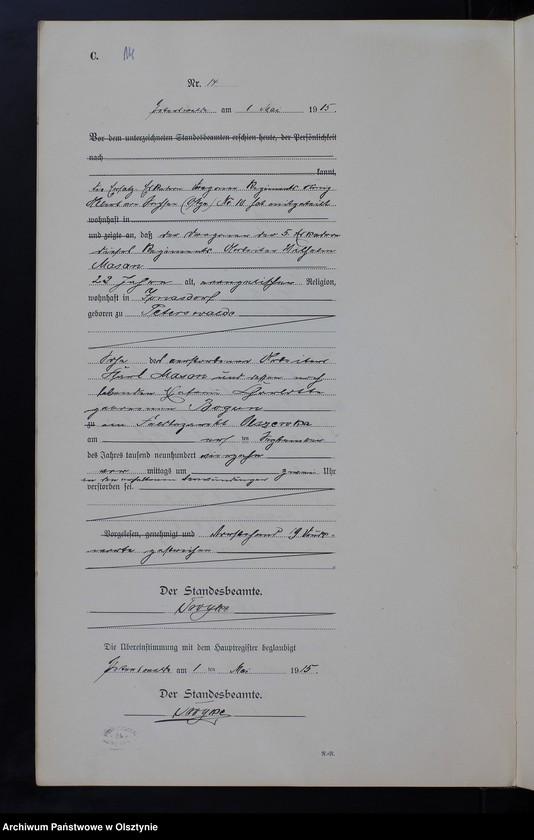 C. 14
Nr. 14
Peterswalde am 1 Mai 1915.
Vor dem unterzeichneten Standesbeamten erschien heute, der Persönlichkeit
nach
kannt,
die Ersatz Eskadron Dragoner Regiments König
Albert von Sachsen (Ostpr.) Nr 10 hat mitgeteilt
wohnhaft in
und zeigte an, daß der Dragoner der 5. Eskadron
dieses Regiments Arbeiter Wilhelm
Masan
22 Jahre alt, evangelischer Religion,
wohnhaft in Jonasdorf
geboren zu Peterswalde
Sohn des verstorbenen Arbeiters
Karl Masan und dessen noch
lebenden Ehefrau
geborenen Bogun
zu im Feldlazarett
am ten September
des Jahres tausend neunhundert vierzehn
vor mittags um zwei Uhr
an den erhaltenen Verwundungen
verstorben sei.
Vorgelesen, genehmigt und Vorstehend 9 Druck-
worte gestrichen
Der Standesbeamte.
Die Übereinstimmung mit dem Hauptregister beglaubigt
Peterswalde am 1 ten Mai 1915.
Der Standesbeamte.
R.-R.
Archiwum Państwowe w Olsztynie